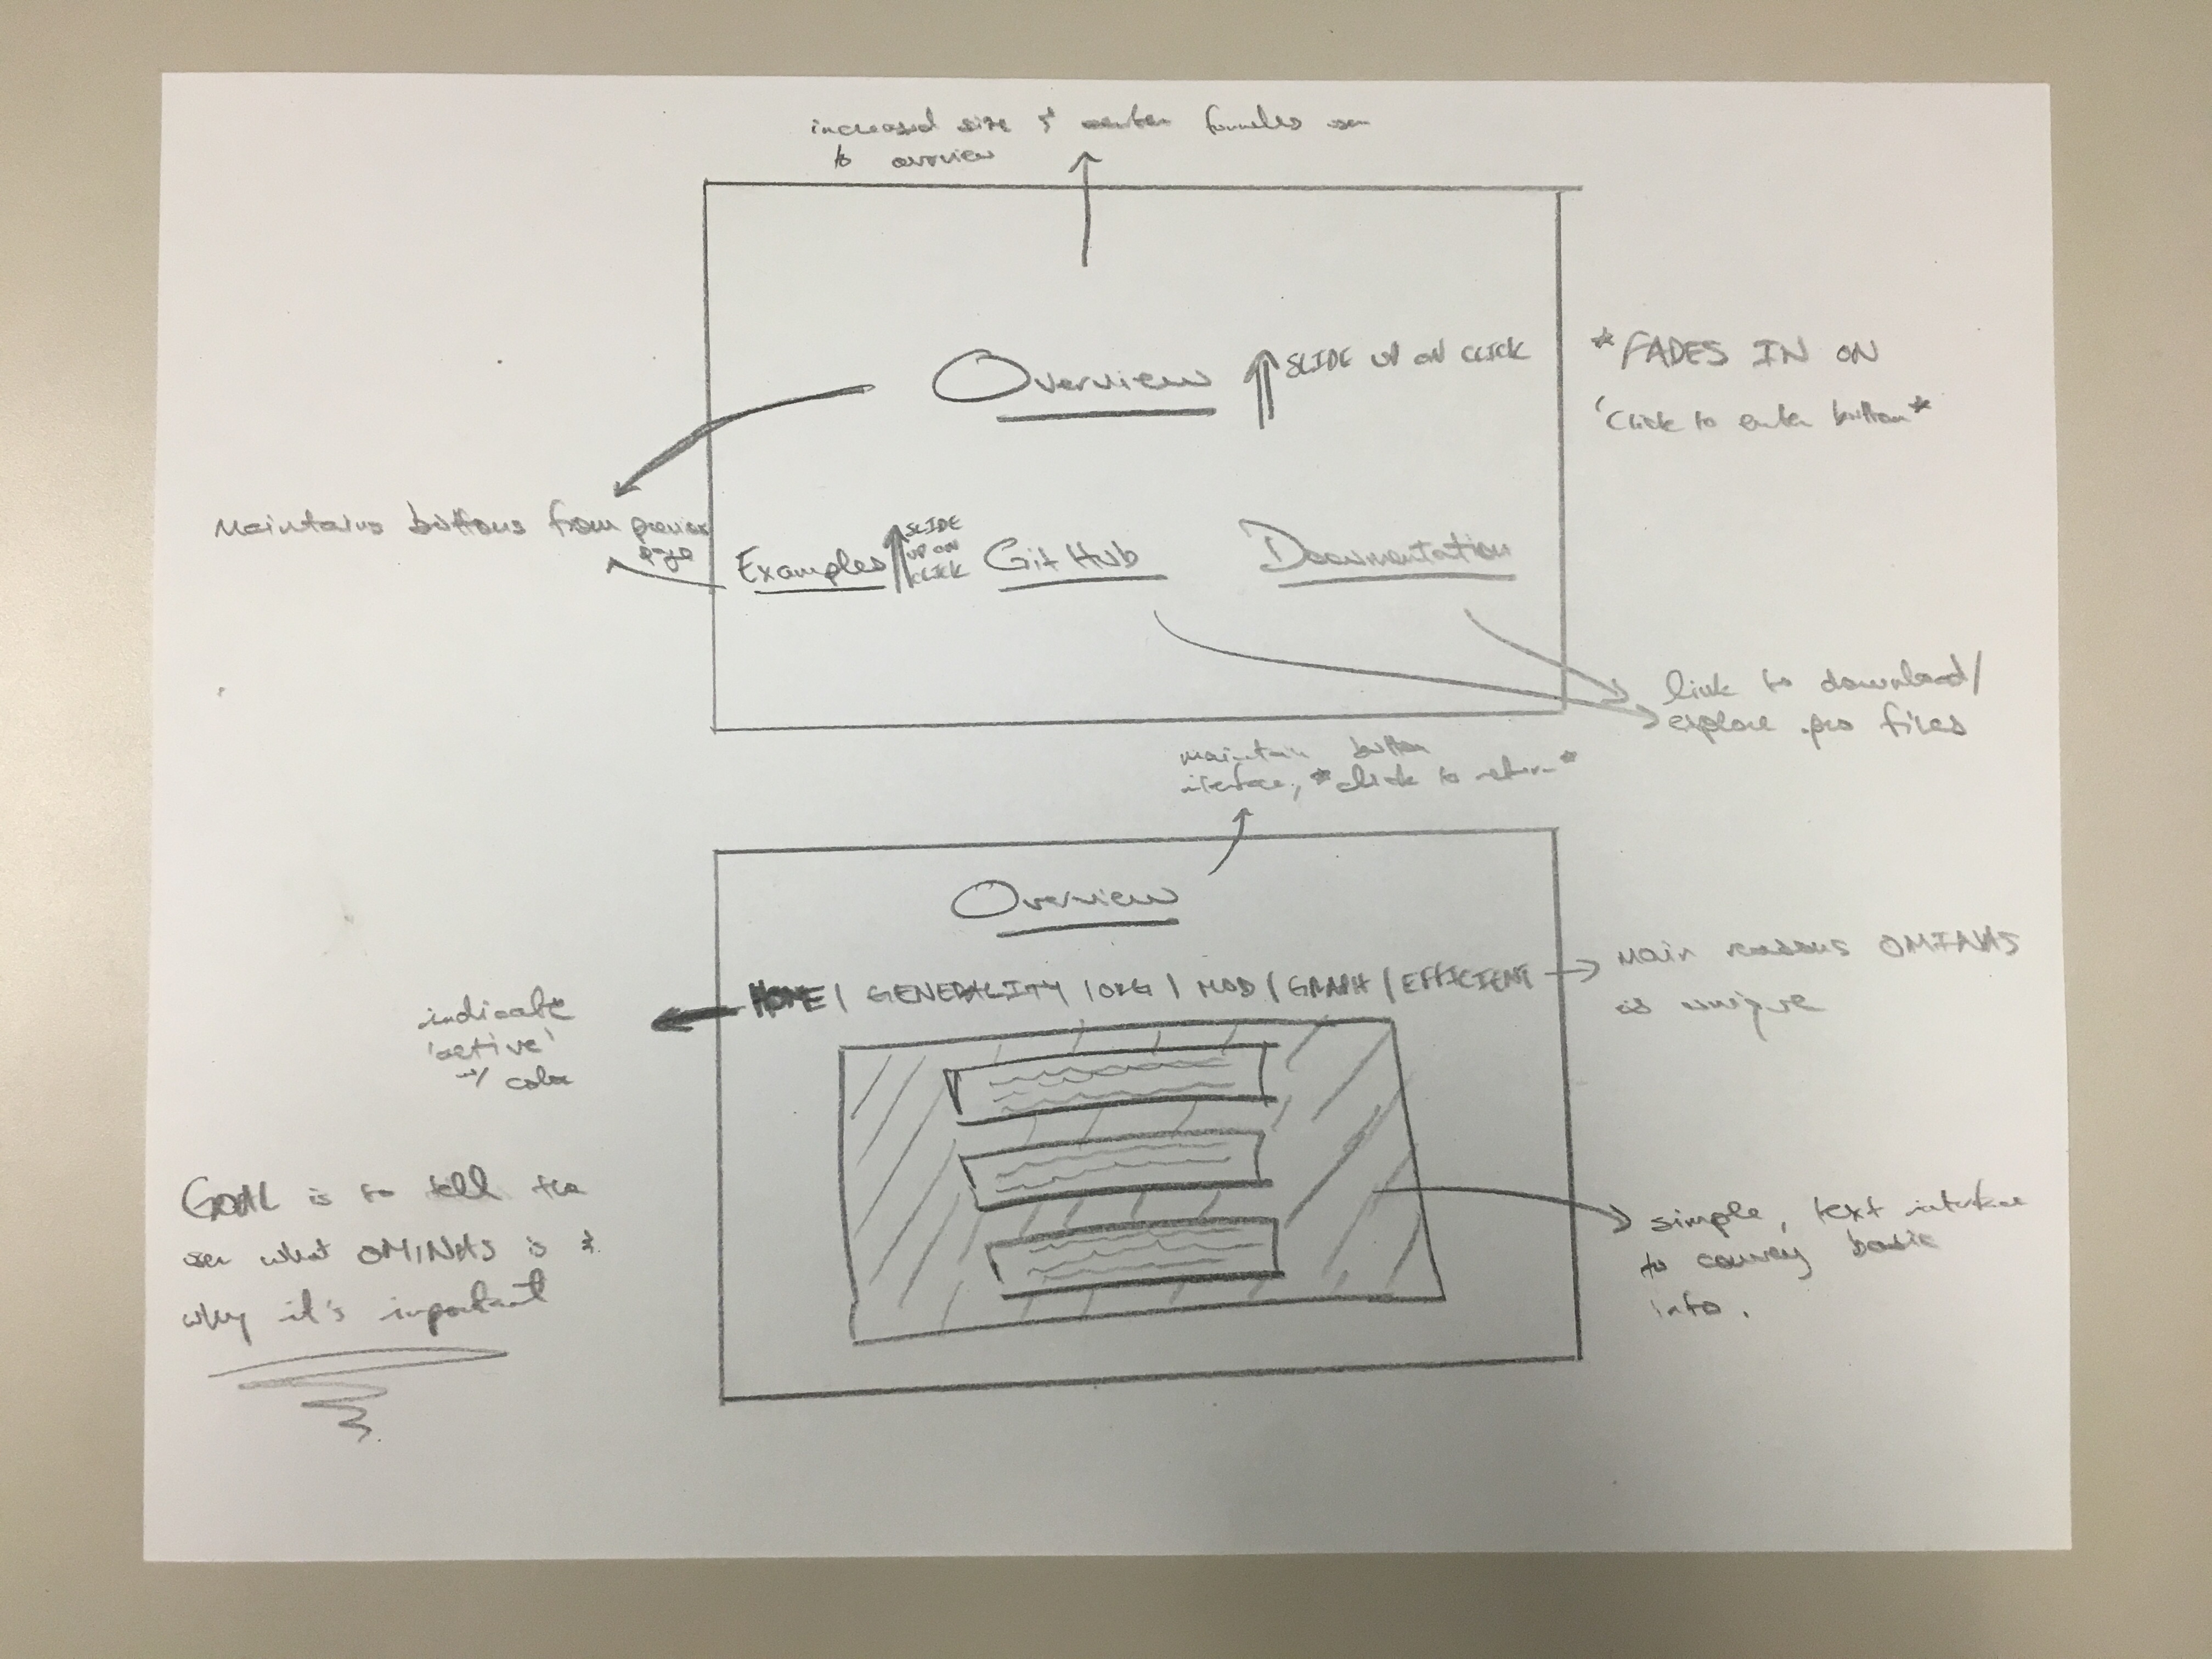 increased size & center funnels user
to overview
Overview
SLIDE UP ON CLICK
*FADES IN ON
'Click to enter button*
Maintains buttons from previous
page
Examples
SLIDE
UP ON
CLICK
GitHub
Documentation
link to download/
explore .pro files
maintain button
interface, *click to return*
Overview
HOME | GENERALITY | ORG | MOD | GRAPH | EFFICIENT
Main reasons OMINAS
is unique
indicate
'active'
w/ color
GOAL is to tell the
user what OMINAS is &
why it's important
simple, text interface
to convey basic
info.